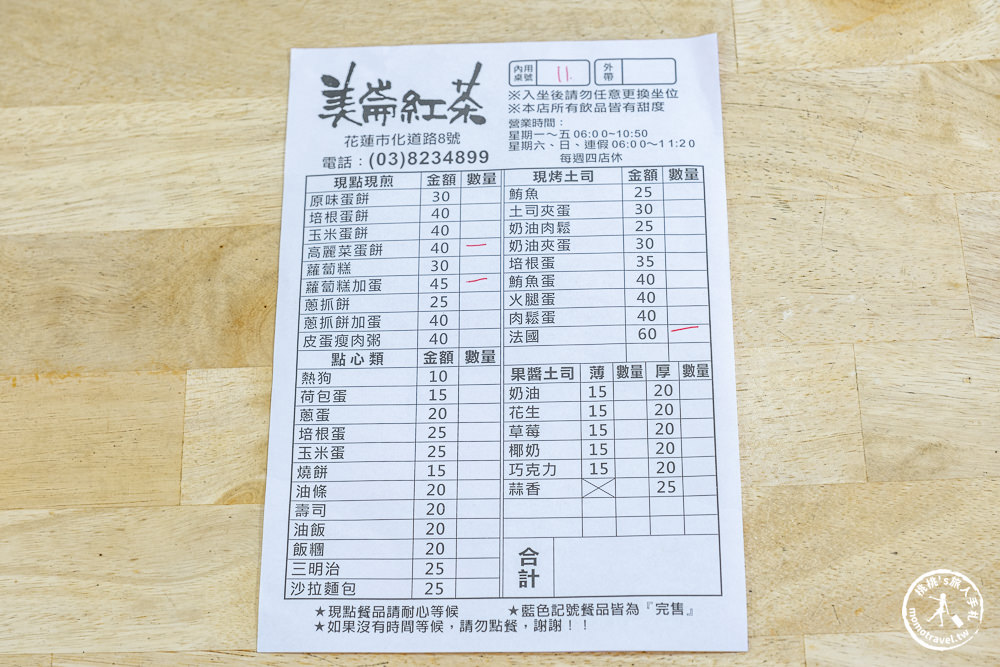 美崙紅茶
花蓮市化道路8號
電話：(03)8234899
內用桌號 11.
外帶
※入坐後請勿任意更換坐位
※本店所有飲品皆有甜度
營業時間：
星期一～五 06:00~10:50
星期六、日、連假 06:00～11:20
每週四店休
現點現煎 金額 數量
原味蛋餅 30
培根蛋餅 40
玉米蛋餅 40
高麗菜蛋餅 40 一
蘿蔔糕 30
蘿蔔糕加蛋 45 一
蔥抓餅 25
蔥抓餅加蛋 40
皮蛋瘦肉粥 40
點心類 金額 數量
熱狗 10
荷包蛋 15
蔥蛋 20
培根蛋 25
玉米蛋 25
燒餅 15
油條 20
壽司 20
油飯 20
飯糰 20
三明治 25
沙拉麵包 25
現烤土司 金額 數量
鮪魚 25
土司夾蛋 30
奶油肉鬆 25
奶油夾蛋 30
培根蛋 35
鮪魚蛋 40
火腿蛋 40
肉鬆蛋 40
法國 60 一
果醬土司 薄 數量 厚 數量
奶油 15 20
花生 15 20
草莓 15 20
椰奶 15 20
巧克力 15 20
蒜香 25
合計
★現點餐品請耐心等候
★藍色記號餐品皆為『完售』
★如果沒有時間等候，請勿點餐，謝謝！！
桃桃's旅人手札
momotravel.tw